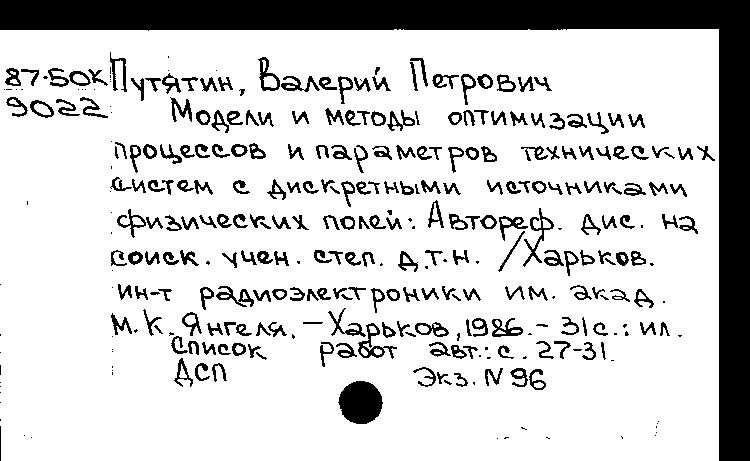 87-50к Путятин, Валерий Петрович
9022 Модели и методы оптимизации
процессов и параметров технических
систем с дискретными источниками
физических полей: Автореф. дис. на
соиск. учен. степ. д.т.н. /Харьков.
ин-т радиоэлектроники им. акад.
М.К. Янгеля. – Харьков, 1986. – 31с.: ил.
Список работ авт.: с. 27-31.
ДСП Экз. N 96